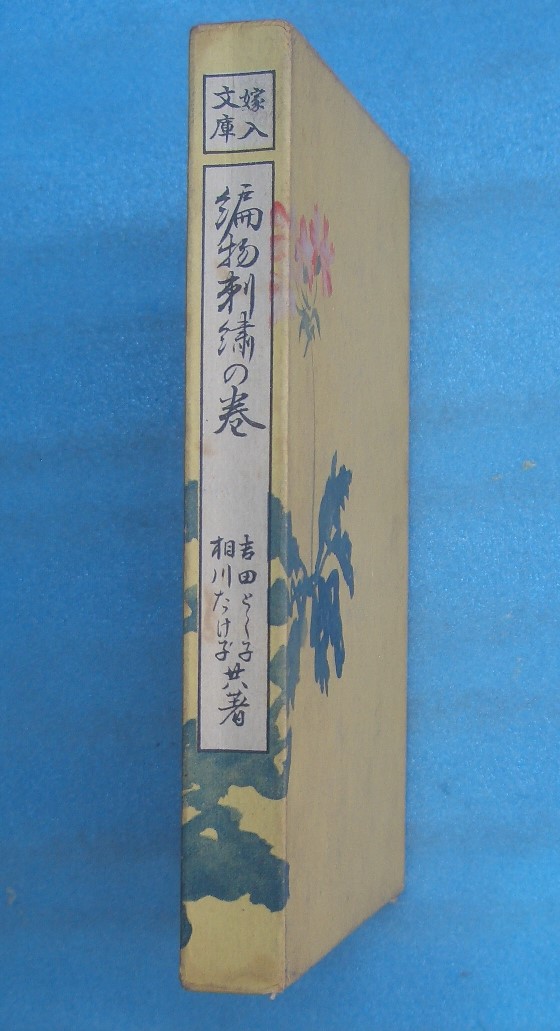 嫁入
文庫
編物刺繍の巻
吉田とく子
相川たけ子
共著